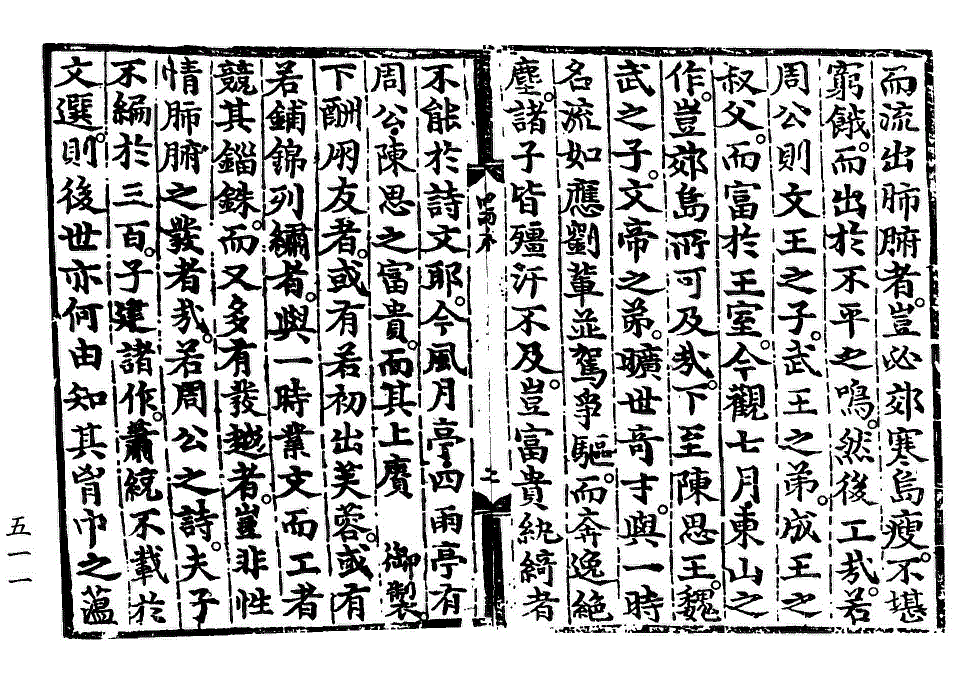 而流出肺腑者。豈必郊寒島瘦。不堪
窮餓。而出於不平之鳴。然後工㢤。若
周公則文王之子。武王之弟。成王之
叔父。而富於王室。今觀七月東山之
作。豈郊島所可及㢤。下至陳思王。魏
武之子。文帝之弟。曠世奇才。與一時
名流如應劉輩並駕爭驅。而奔逸絶
塵。諸子皆殭汗不及。豈富貴紈綺者
不能於詩文耶。今風月亭四雨亭有
周公陳思之富貴。而其上賡 御製。
下酬朋友者。或有若初出芙蓉。或有
若鋪錦列繡者。與一時業文而工者
競其錙銖。而又多有發越者。豈非性
情肺腑之發者㢤。若周公之詩。夫子
不編於三百。子建諸作。蕭統不載於
文選。則後世亦何由知其胷中之藴
五一一